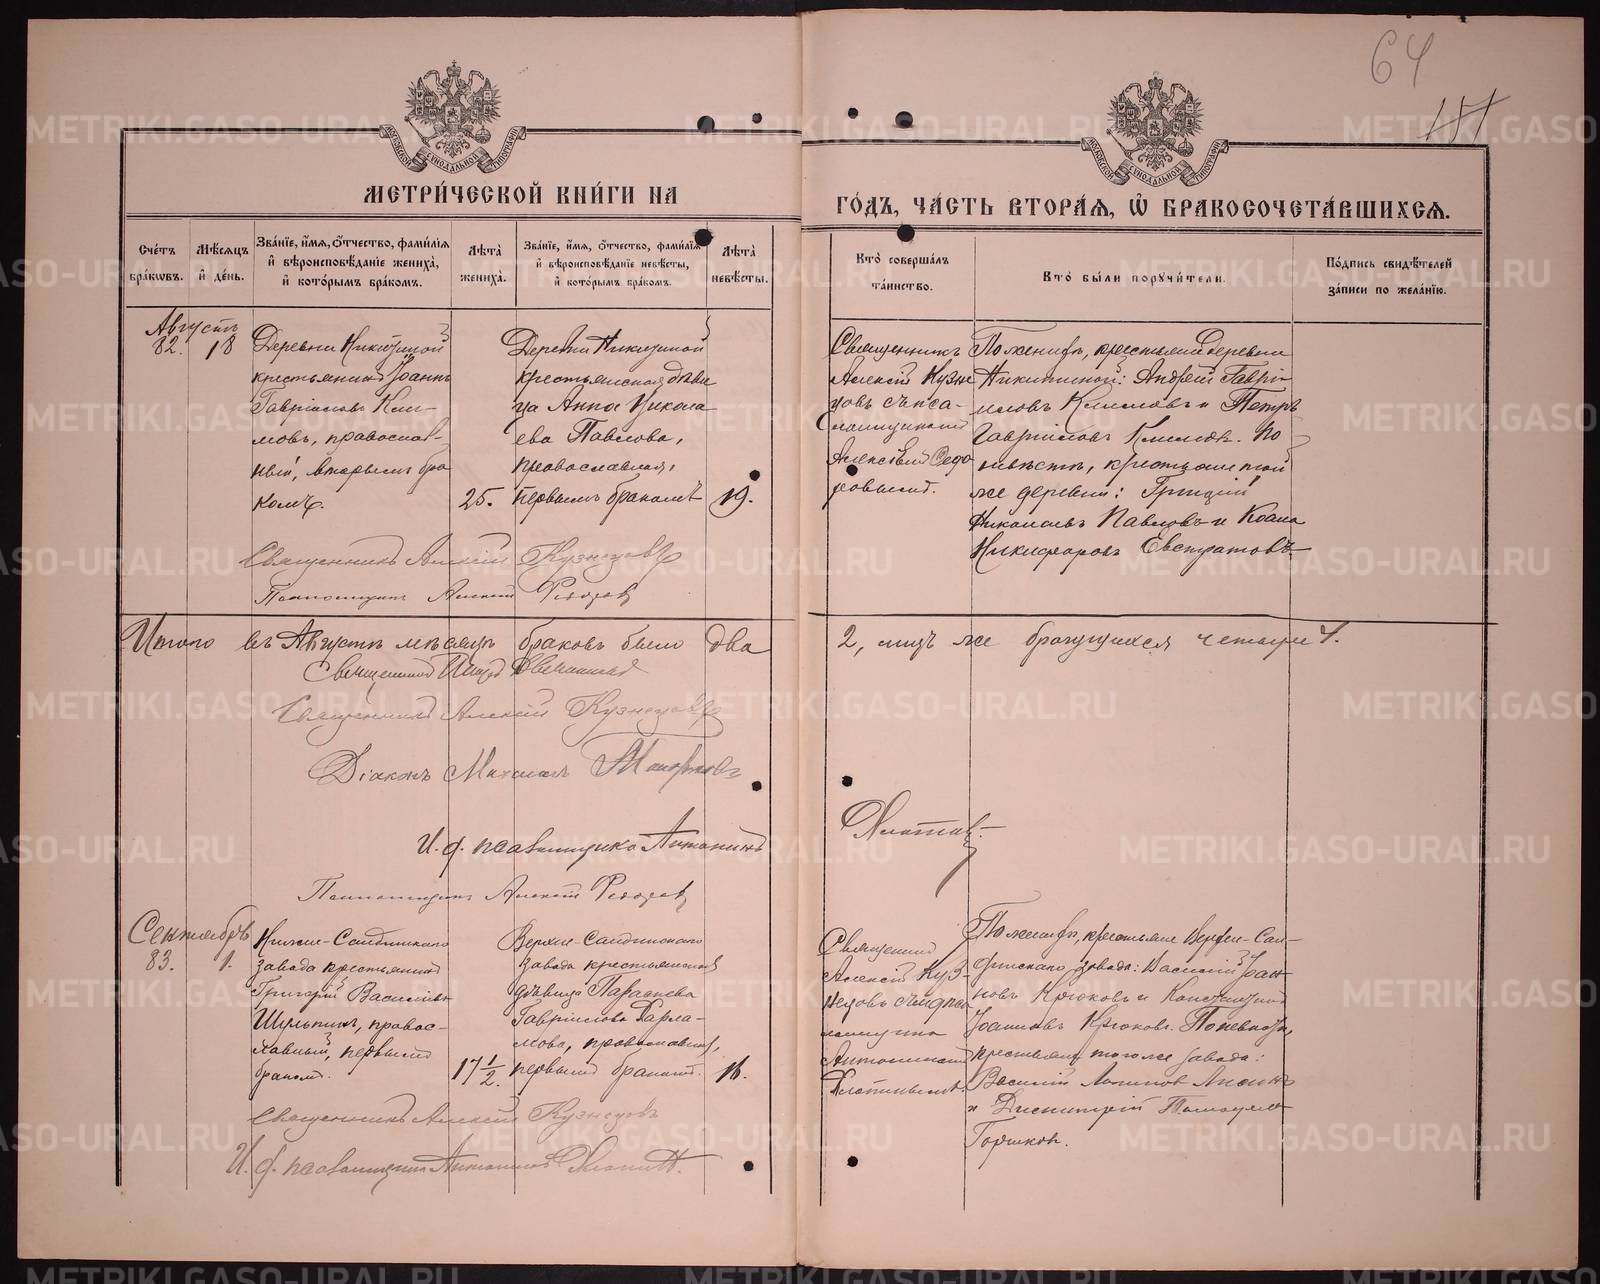 64
МЕТРИЧЕСКОЙ КНИГИ НА
ГОДЪ, ЧАСТЬ ВТОРАЯ, Ѡ БРАКОСОЧЕТАВШИХСЯ.
Счетъ браковъ.
Мѣсяцъ и день.
Званіе, имя, отчество, фамилія и вѣроисповѣданіе жениха, и которымъ бракомъ.
Лѣта жениха.
Званіе, имя, отчество, фамилія и вѣроисповѣданіе невѣсты, и которымъ бракомъ.
Лѣта невѣсты.
Кто совершалъ таинство.
Кто были поручители.
Подпись свидѣтелей записи по желанію.
Августъ
82. 18
Деревни Никитиной
крестьянинъ Іоаннъ
Гавріиловъ Кли-
мовъ, православ-
ный, вторымъ бра
комъ.
25.
Деревни Никитиной
крестьянская дѣви
ца Анна Никола
ева Павлова,
православная,
первымъ бракомъ
19.
Священникъ
Алексій Кузне
цовъ съ пса-
ломщикомъ
Алексѣемъ Ѳедо
ровымъ.
По женихѣ, крестьяне деревни
Никитиной: Андрей Гаврі-
иловъ Климовъ и Петръ
Гавріиловъ Климовъ. По
невѣстѣ, крестьяне той
же деревни: Григорій
Николаевъ Павловъ и
Никифоровъ Евстратовъ.
Священникъ Алексій Кузнецовъ
Псаломщикъ Алексій Ѳедоровъ
Итого въ Августѣ мѣсяцѣ браковъ было два
2, лицъ же брачущихся четыре 4.
Священникъ
Священникъ Алексій Кузнецовъ
Діаконъ Михаилъ
И. д. псаломщика Антонинъ
Платинъ
Псаломщикъ Алексій Ѳедоровъ
Сентябрь
83. 1.
Нижне-
завода крестьянинъ
Григорій Васильевъ
Шульгинъ, правос-
лавный, первымъ
бракомъ.
17 1/2.
Верхне-
завода крестьянская
дѣвица Параскева
Гавріилова Варла-
мова, православная,
первымъ бракомъ.
16.
Священникъ
Алексій Куз-
нецовъ съ и. д. пса
ломщика
Антониномъ
Платинымъ.
По женихѣ, крестьяне Верхне-
завода: Василій Іоан
новъ Крюковъ и Константинъ
Іоанновъ Крюковъ. По невѣстѣ,
крестьяне того же завода:
Василій
и Димитрій
Горшковъ.
Священникъ Алексій Кузнецовъ
И. д. псаломщика Антонинъ Платинъ.
METRIKI.GASO-URAL.RU